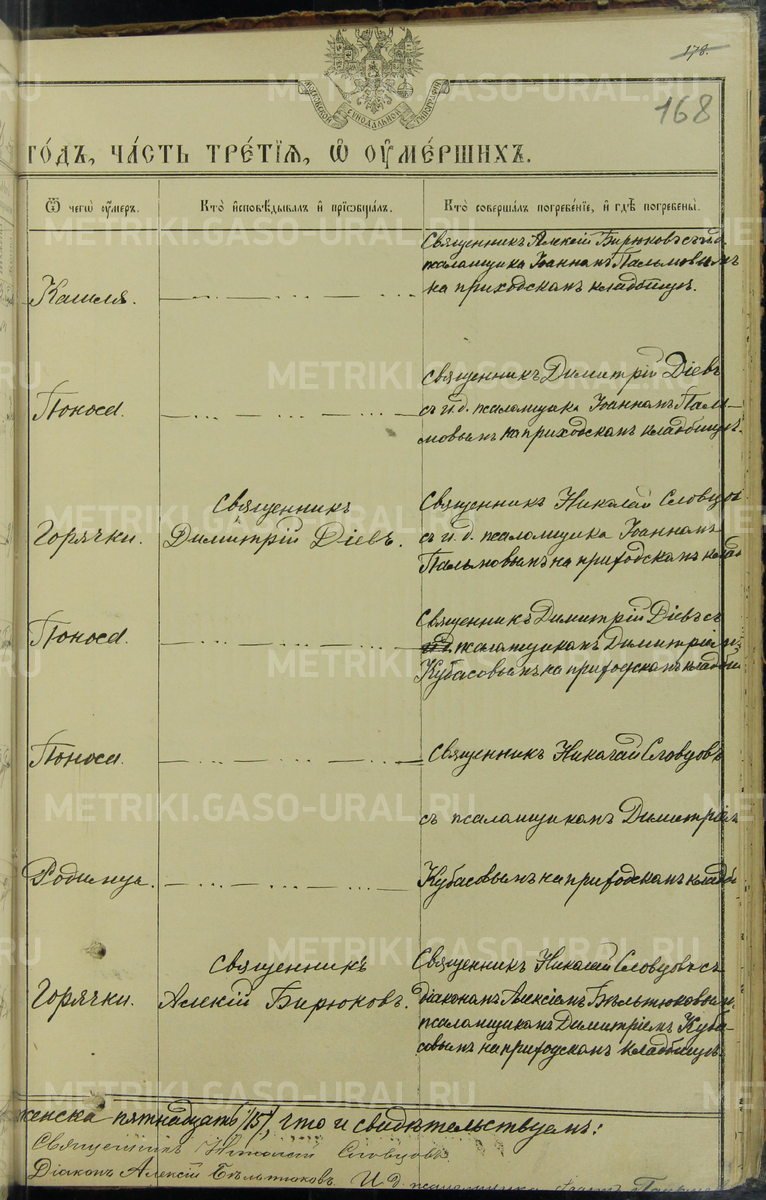 178.
168
МОСКОВСКОЙ СѴНОДАЛЬНОЙ ТИПОГРАФІИ
го́дъ, ча́сть тре́тїѧ, ѡ҆ ᲂу҆ме́ршихъ.
Ѿ чегѡ̀ ᲂу҆́меръ.
Кто̀ и҆сповѣ́дывалъ и҆ прїѡбща́лъ.
Кто̀ соверша́лъ погребе́нїе, и҆ гдѣ̀ погребены̀.
Кашля.
Священникъ Алексій Бирюковъ съ и.д.
псаломщика Іоанномъ Пальмовымъ
на приходскомъ кладбищѣ.
Поноса
Священникъ Димитрій Діевъ
съ и.д. псаломщика Іоанномъ Паль-
мовымъ на приходскомъ кладбищѣ.
Горячки.
Священникъ
Димитрій Діевъ.
Священникъ Николай Словцовъ
съ и.д. псаломщика Іоанномъ
Пальмовымъ на приходскомъ кладб
Поноса
Священникъ Димитрій Діевъ съ
псаломщикомъ Димитріемъ
Кубасовымъ на приходскомъ кладби
Поноса.
Священникъ Николай Словцовъ
съ псаломщикомъ Димитріемъ
Родимца.
Кубасовымъ на приходскомъ кладби
Горячки.
Священникъ
Алексій Бирюковъ.
Священникъ Николай Словцовъ съ
діакономъ Алексіемъ Бѣльтюковымъ,
псаломщикомъ Димитріемъ Куба-
совымъ на приходскомъ кладбищѣ
женска пятнадцать /15/, что и свидѣтельствуемъ:
Священникъ Николай Словцовъ
Діаконъ Алексій Бѣльтюковъ. И.д. псаломщика Іоаннъ
METRIKI.GASO-URAL.RU